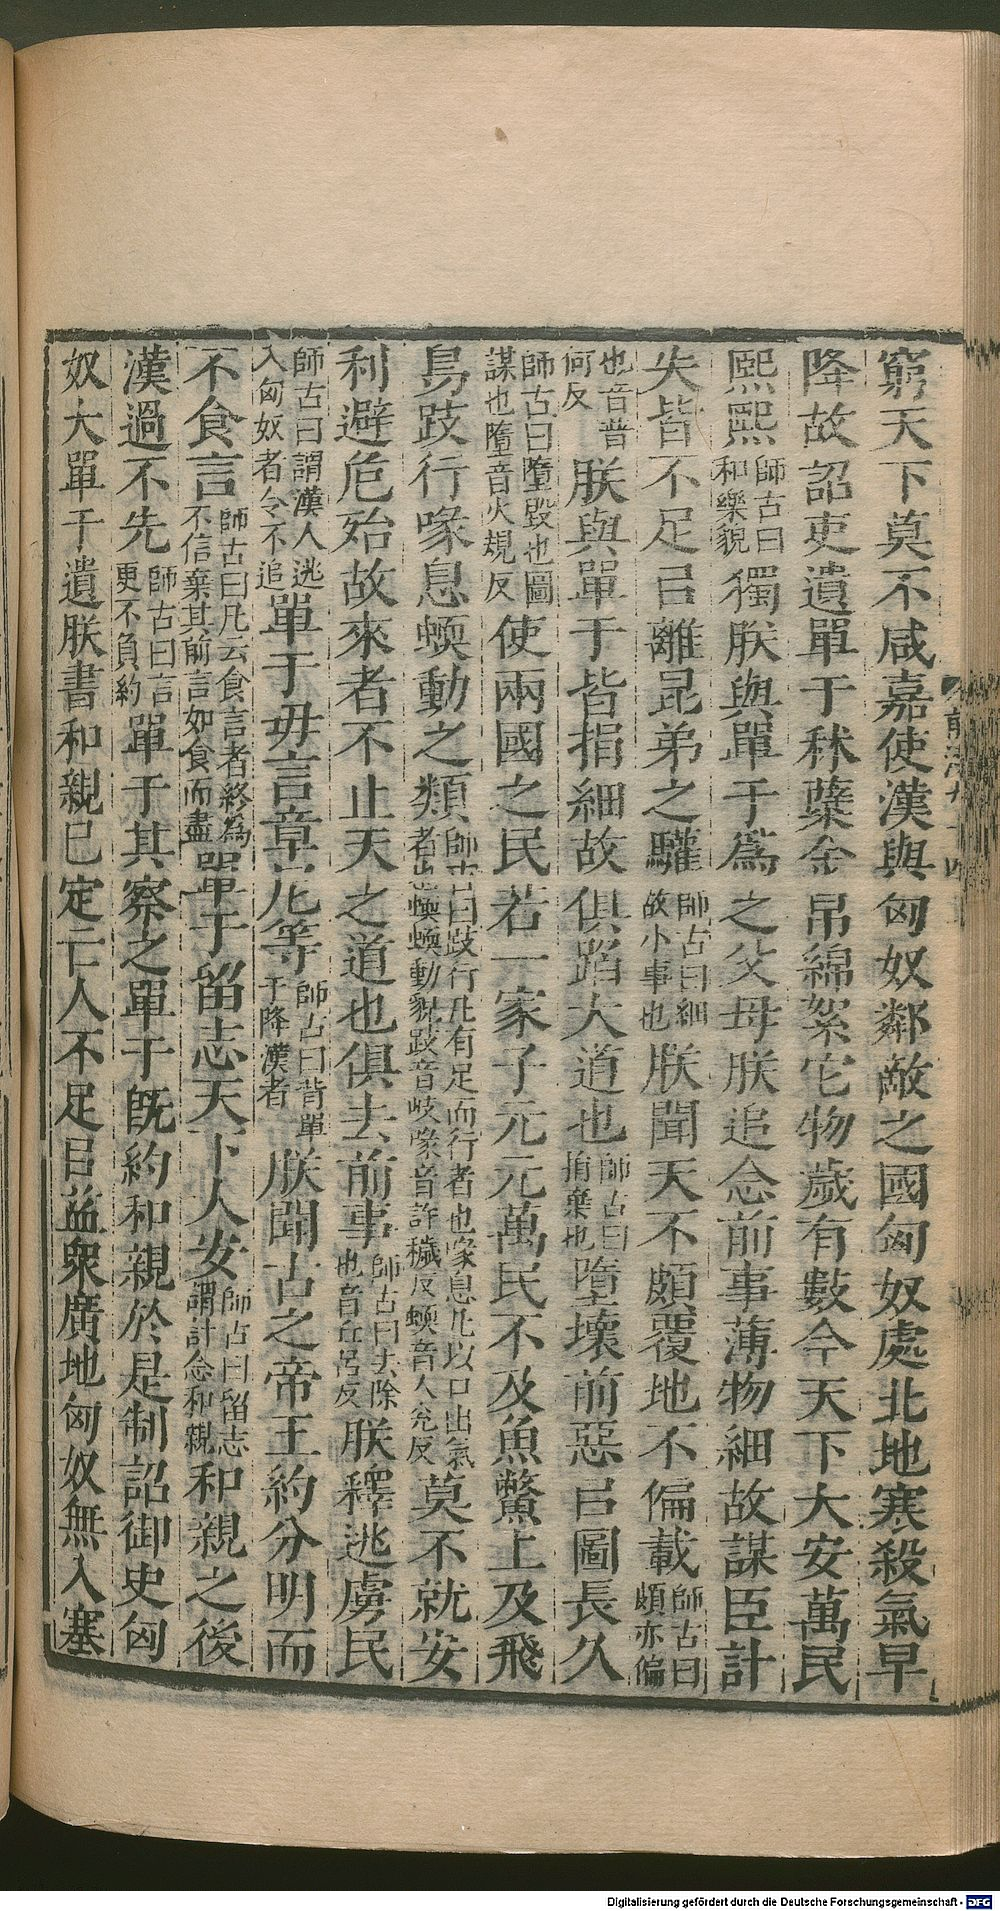 窮天下莫不咸嘉使漢與匈奴鄰敵之國匈奴處北地寒殺氣早
降故詔吏遺單于秫糱金帛綿絮它物歲有數今天下大安萬民
熙熙師古曰和樂貌獨朕與單于爲之父母朕追念前事薄物細故謀臣計
失皆不足㠯離昆弟之驩師古曰細故小事也朕聞天不頗覆地不偏載師古曰頗亦偏
也音普何反朕與單于皆捐細故俱蹈大道也師古曰捐棄也墮壞前惡㠯圖長久
師古曰墮毀也圖謀也墮音火規反使兩國之民若一家子元元萬民下及魚鱉上及飛
鳥跂行喙息蝡動之類師古曰跂行凡有足而行者也喙息凡以口出氣者也蝡蝡動貌跂音岐喙音許穢反蝡音人兗反莫不就安
利避危殆故來者不止天之道也俱去前事師古曰去除也音丘呂反朕釋逃虜民
師古曰謂漢人逃入匈奴者令不追單于毋言章尼等師古曰背單于降漢者朕聞古之帝王約分明而
不食言師古曰凡云食言者終為不信棄其前言如食而盡單于留志天下大安師古曰留志謂計念和親和親之後
漢過不先師古曰言更不負約單于其察之單于旣約和親於是制詔御史匈
奴大單于遺朕書和親已定亡人不足㠯益衆廣地匈奴無入塞
Digitalisierung gefördert durch die Deutsche Forschungsgemeinschaft - DFG